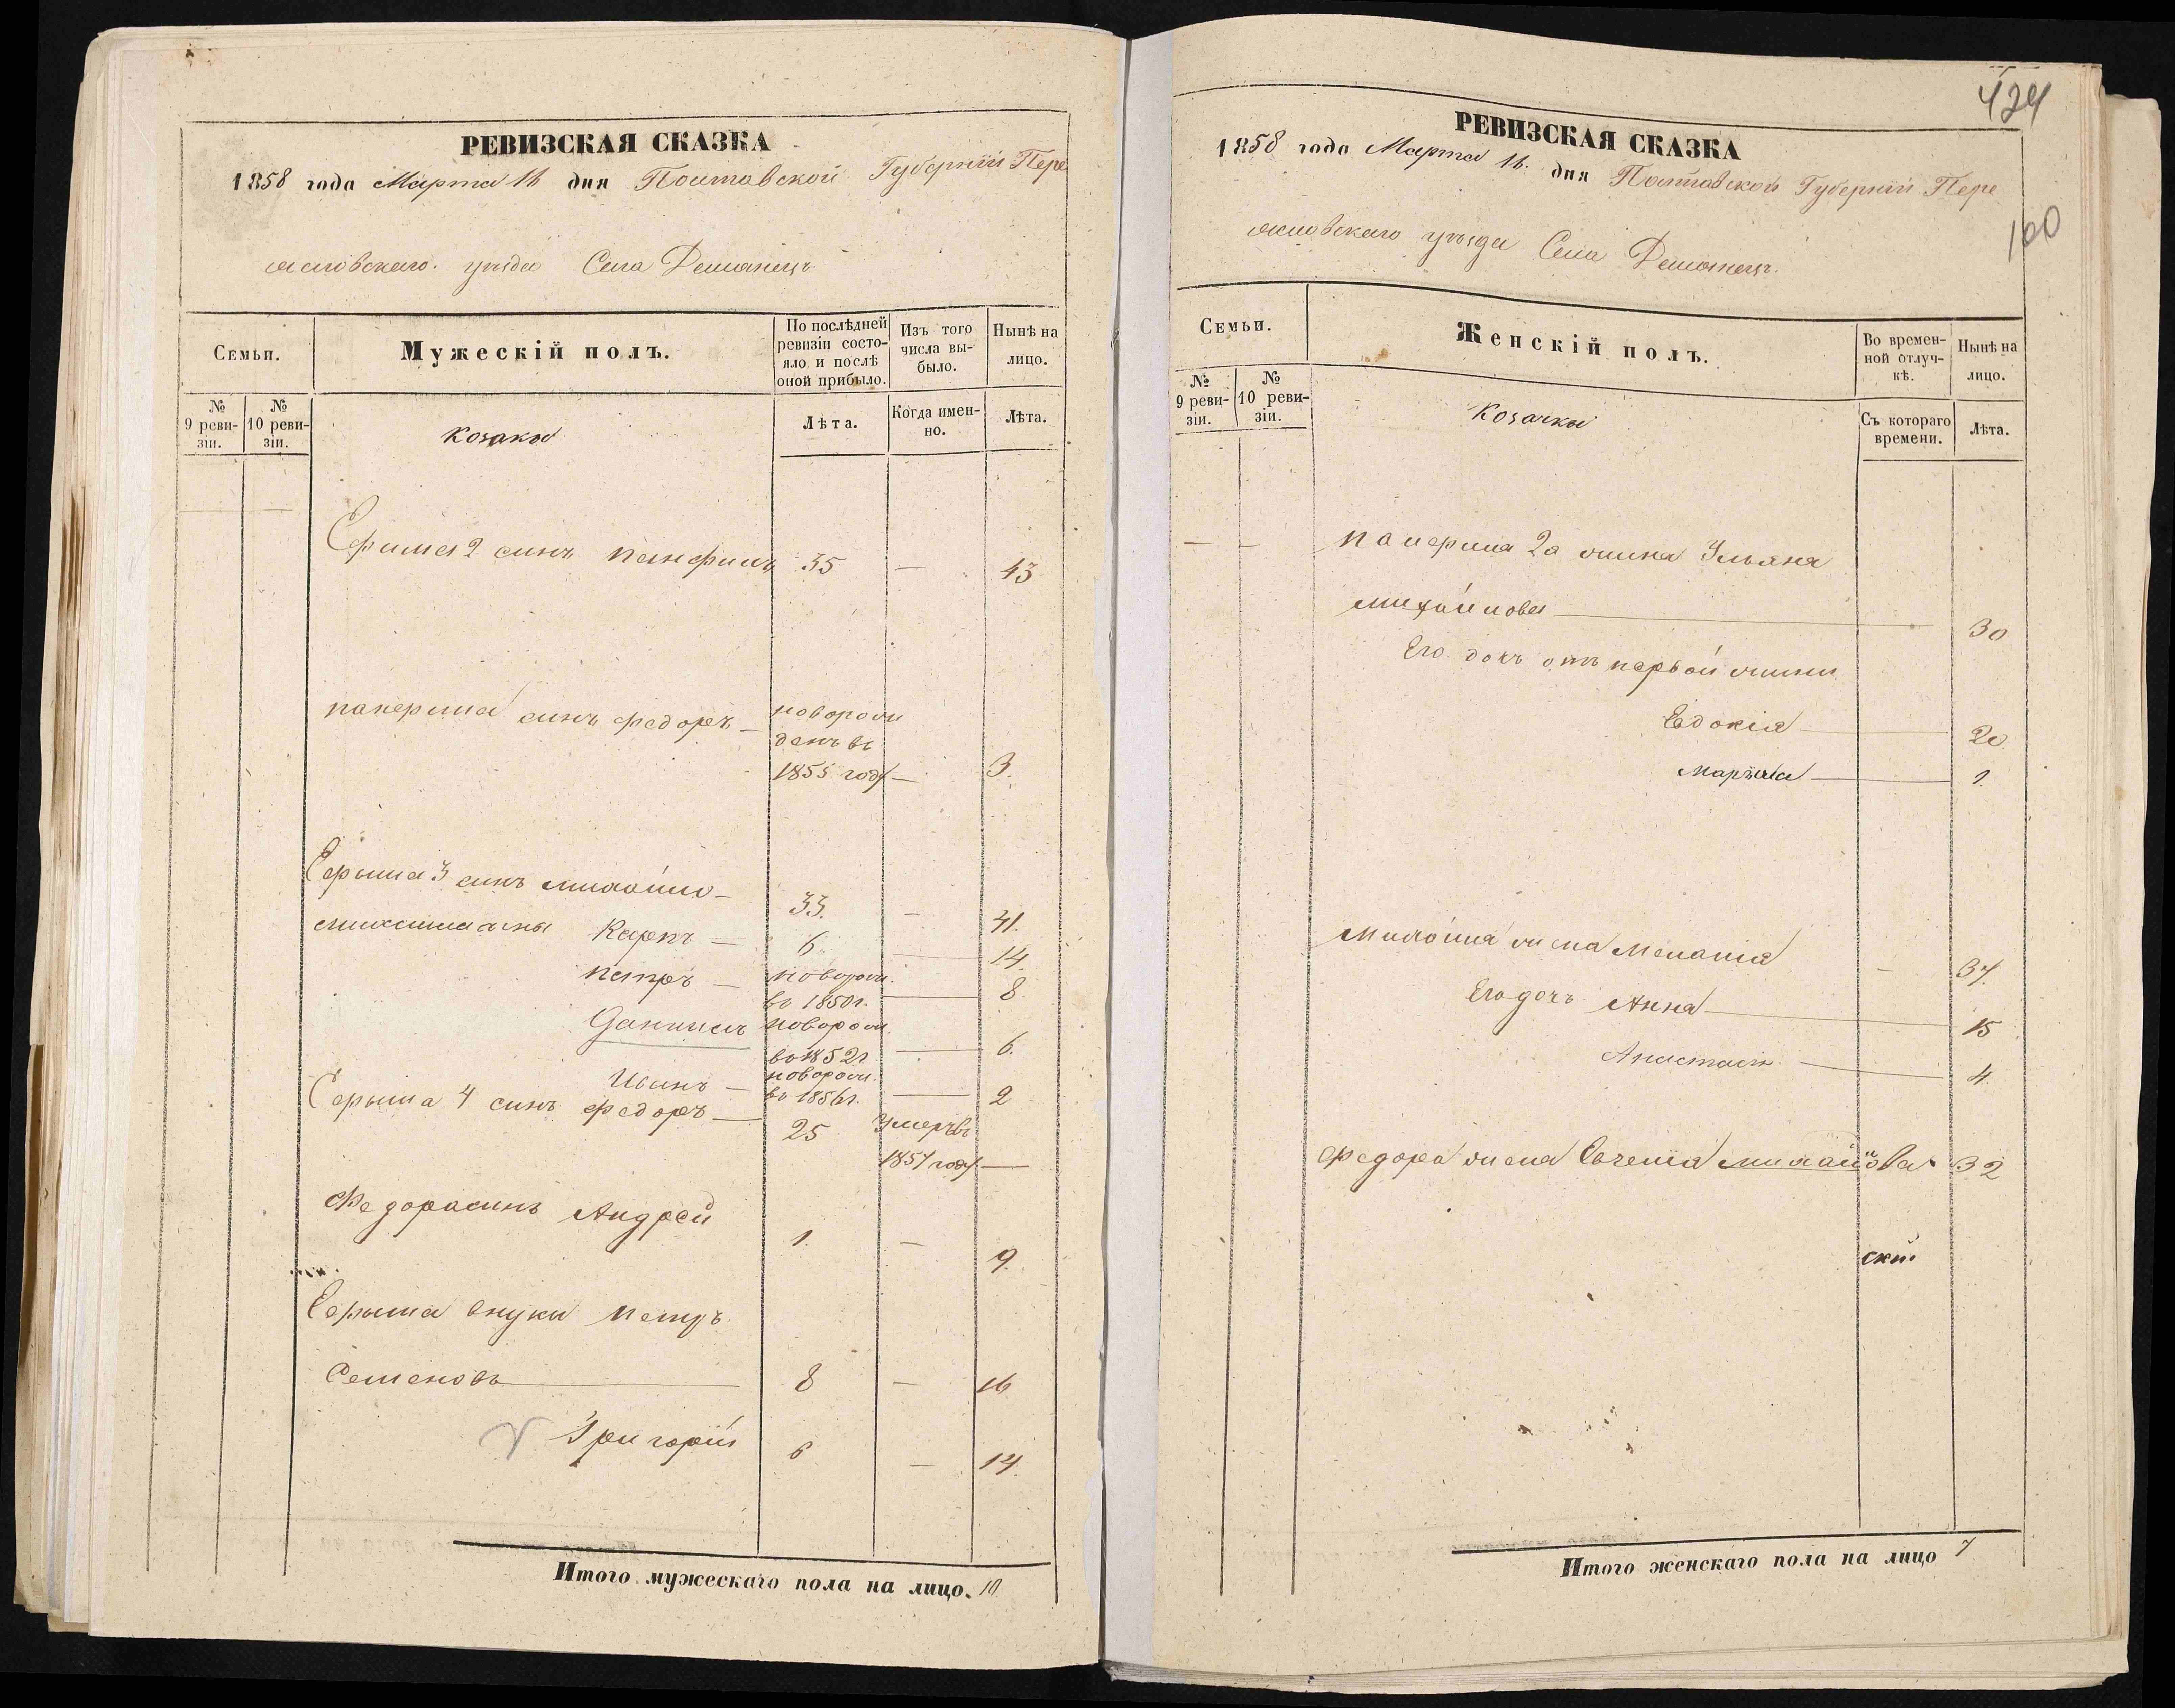 РЕВИЗСКАЯ СКАЗКА
1858 года Марта 16 дня Полтавской Губерніи Пере
яславского уѣзда Села Демянецъ
Семьи.
Мужескій полъ.
По послѣдней ревизіи состояло и послѣ оной прибыло.
Изъ того числа выбыло.
Нынѣ на лицо.
№ 9 ревизіи.
№ 10 ревизіи.
Козаки
Лѣта.
Когда именно.
Лѣта.
Ефима 2 синъ Панфилъ 35 — 43
панфила синъ федоръ — новорож
денъ въ
1855 году — 3.
Ефыма 3 синъ михайло — 33. — 41.
михаила сны Карпъ — 6. — 14.
петръ — новорож.
въ 1850г. — 8
Данилъ новорож.
въ 1852г — 6.
Иванъ — новорож.
въ 1856г. — 2
Ефыма 4 синъ федоръ — 25 Умеръ въ
1857 году —
Федора синъ Андрей 1. — 9.
Ефыма внуки петръ
Семеновъ — 8 — 16
Григорій 6 — 14.
Итого мужескаго пола на лицо. 10
424
РЕВИЗСКАЯ СКАЗКА
1858 года Марта 16. дня Полтавской Губерніи Пере
яславскаго уѣзда Села Демянецъ.
100
Семьи.
Женскій полъ.
Во временной отлучкѣ.
Нынѣ на лицо.
№ 9 ревизіи.
№ 10 ревизіи.
Козачки
Съ котораго времени.
Лѣта.
панфила 2а жина Ульяна
михайлова — 30
Его дочъ отъ первой жини
Евдокія — 20.
Марѣна — 1.
Михайла жина Меланія — 37.
Его дочъ Анна — 15
Анастасія — 4.
Федора жина Евгенія михайлова 32
ски.
Итого женскаго пола на лицо 7